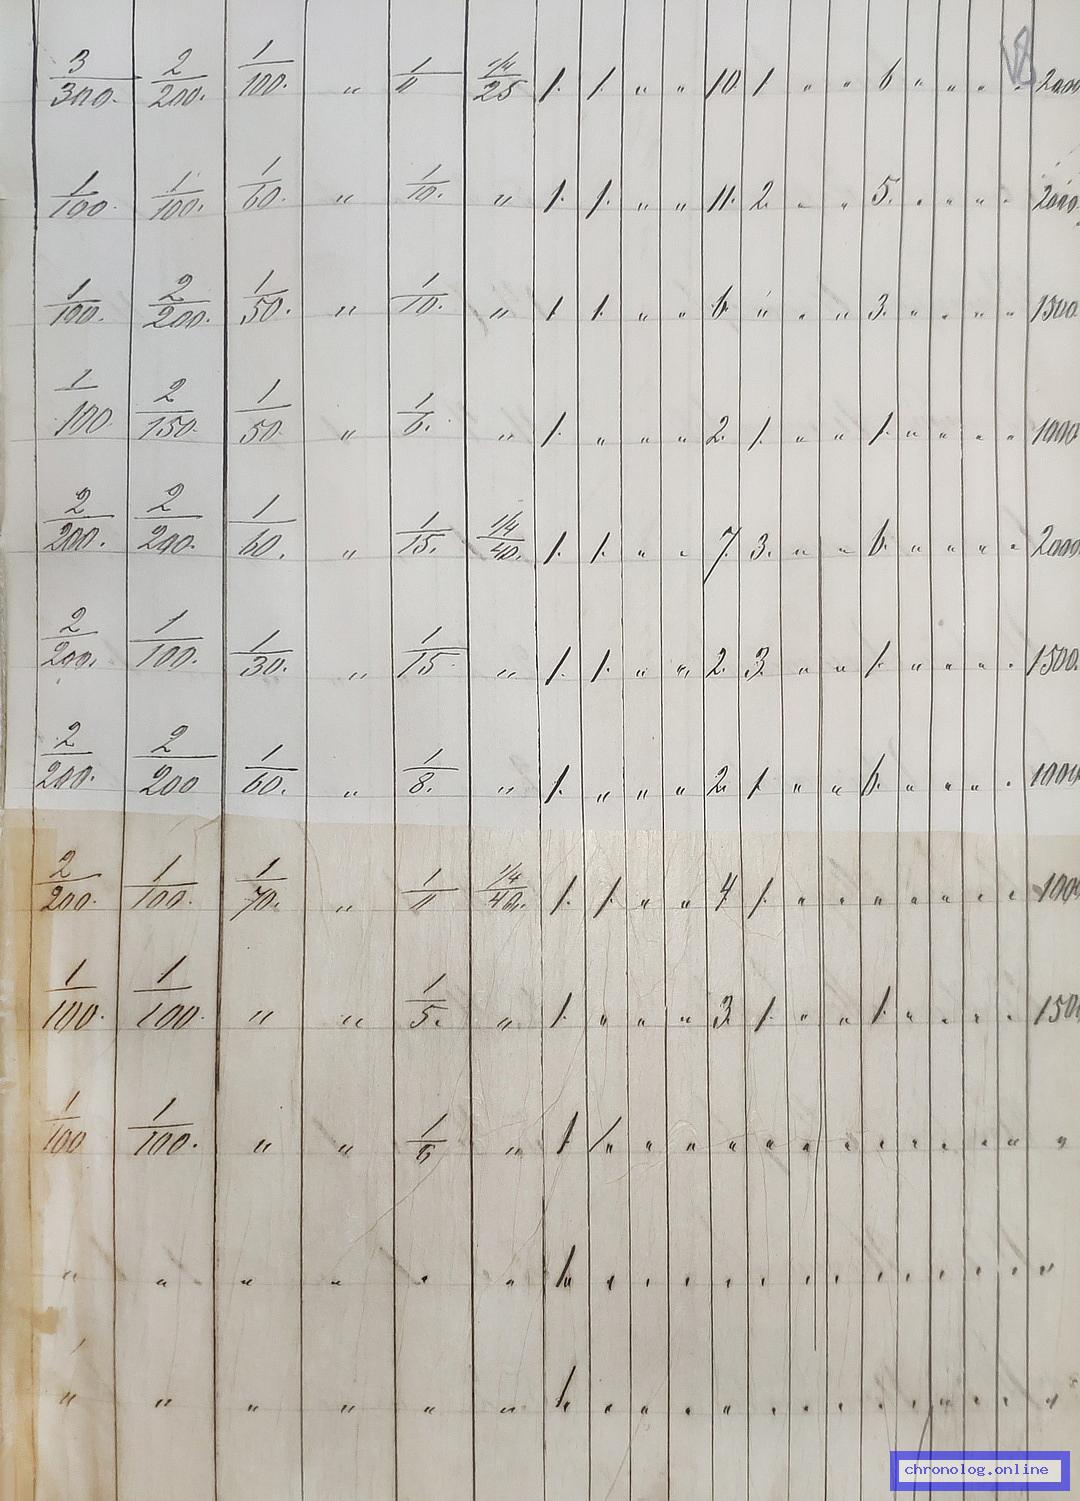 3/300. 2/200. 1/100. " 1/" 14/25 1. 1. " " 10. 1 " " 6 " " " . 2000
1/100. 1/100. 1/60. " 1/10. " 1. 1. " " 11. 2. " " 5. " " " " 2000
1/100. 2/200. 1/50. " 1/10. " 1 1. " " 6 " " " 3. " " " " 1500
1/100 2/150 1/50 " 1/6. " 1. " " " 2. 1. " " 1. " " " " 1000
2/200. 2/200. 1/60. " 1/15. 14/40. 1. 1. " " 7 3. " " 6. " " " " 2000
2/200. 1/100. 1/30. " 1/15. " 1. 1. " " 2. 3. " " 1. " " " " 1500.
2/200. 2/200 1/60. " 1/8. " 1. " " " 2. 1. " " 6. " " " " 1000
2/200. 1/100. 1/70. " 1/" 14/40. 1. 1. " " 4 1. " " " " " " " 100
1/100. 1/100. " " 1/5. " 1. " " " 3. 1. " " 1. " " " " 150
1/100 1/100. " " 1/6 " 1 1 " " " " " " " " " " " "
" " " " " " 1. " " " " " " " " " " " " "
" " " " " " 1. " " " " " " " " " " " " "
chronolog.online